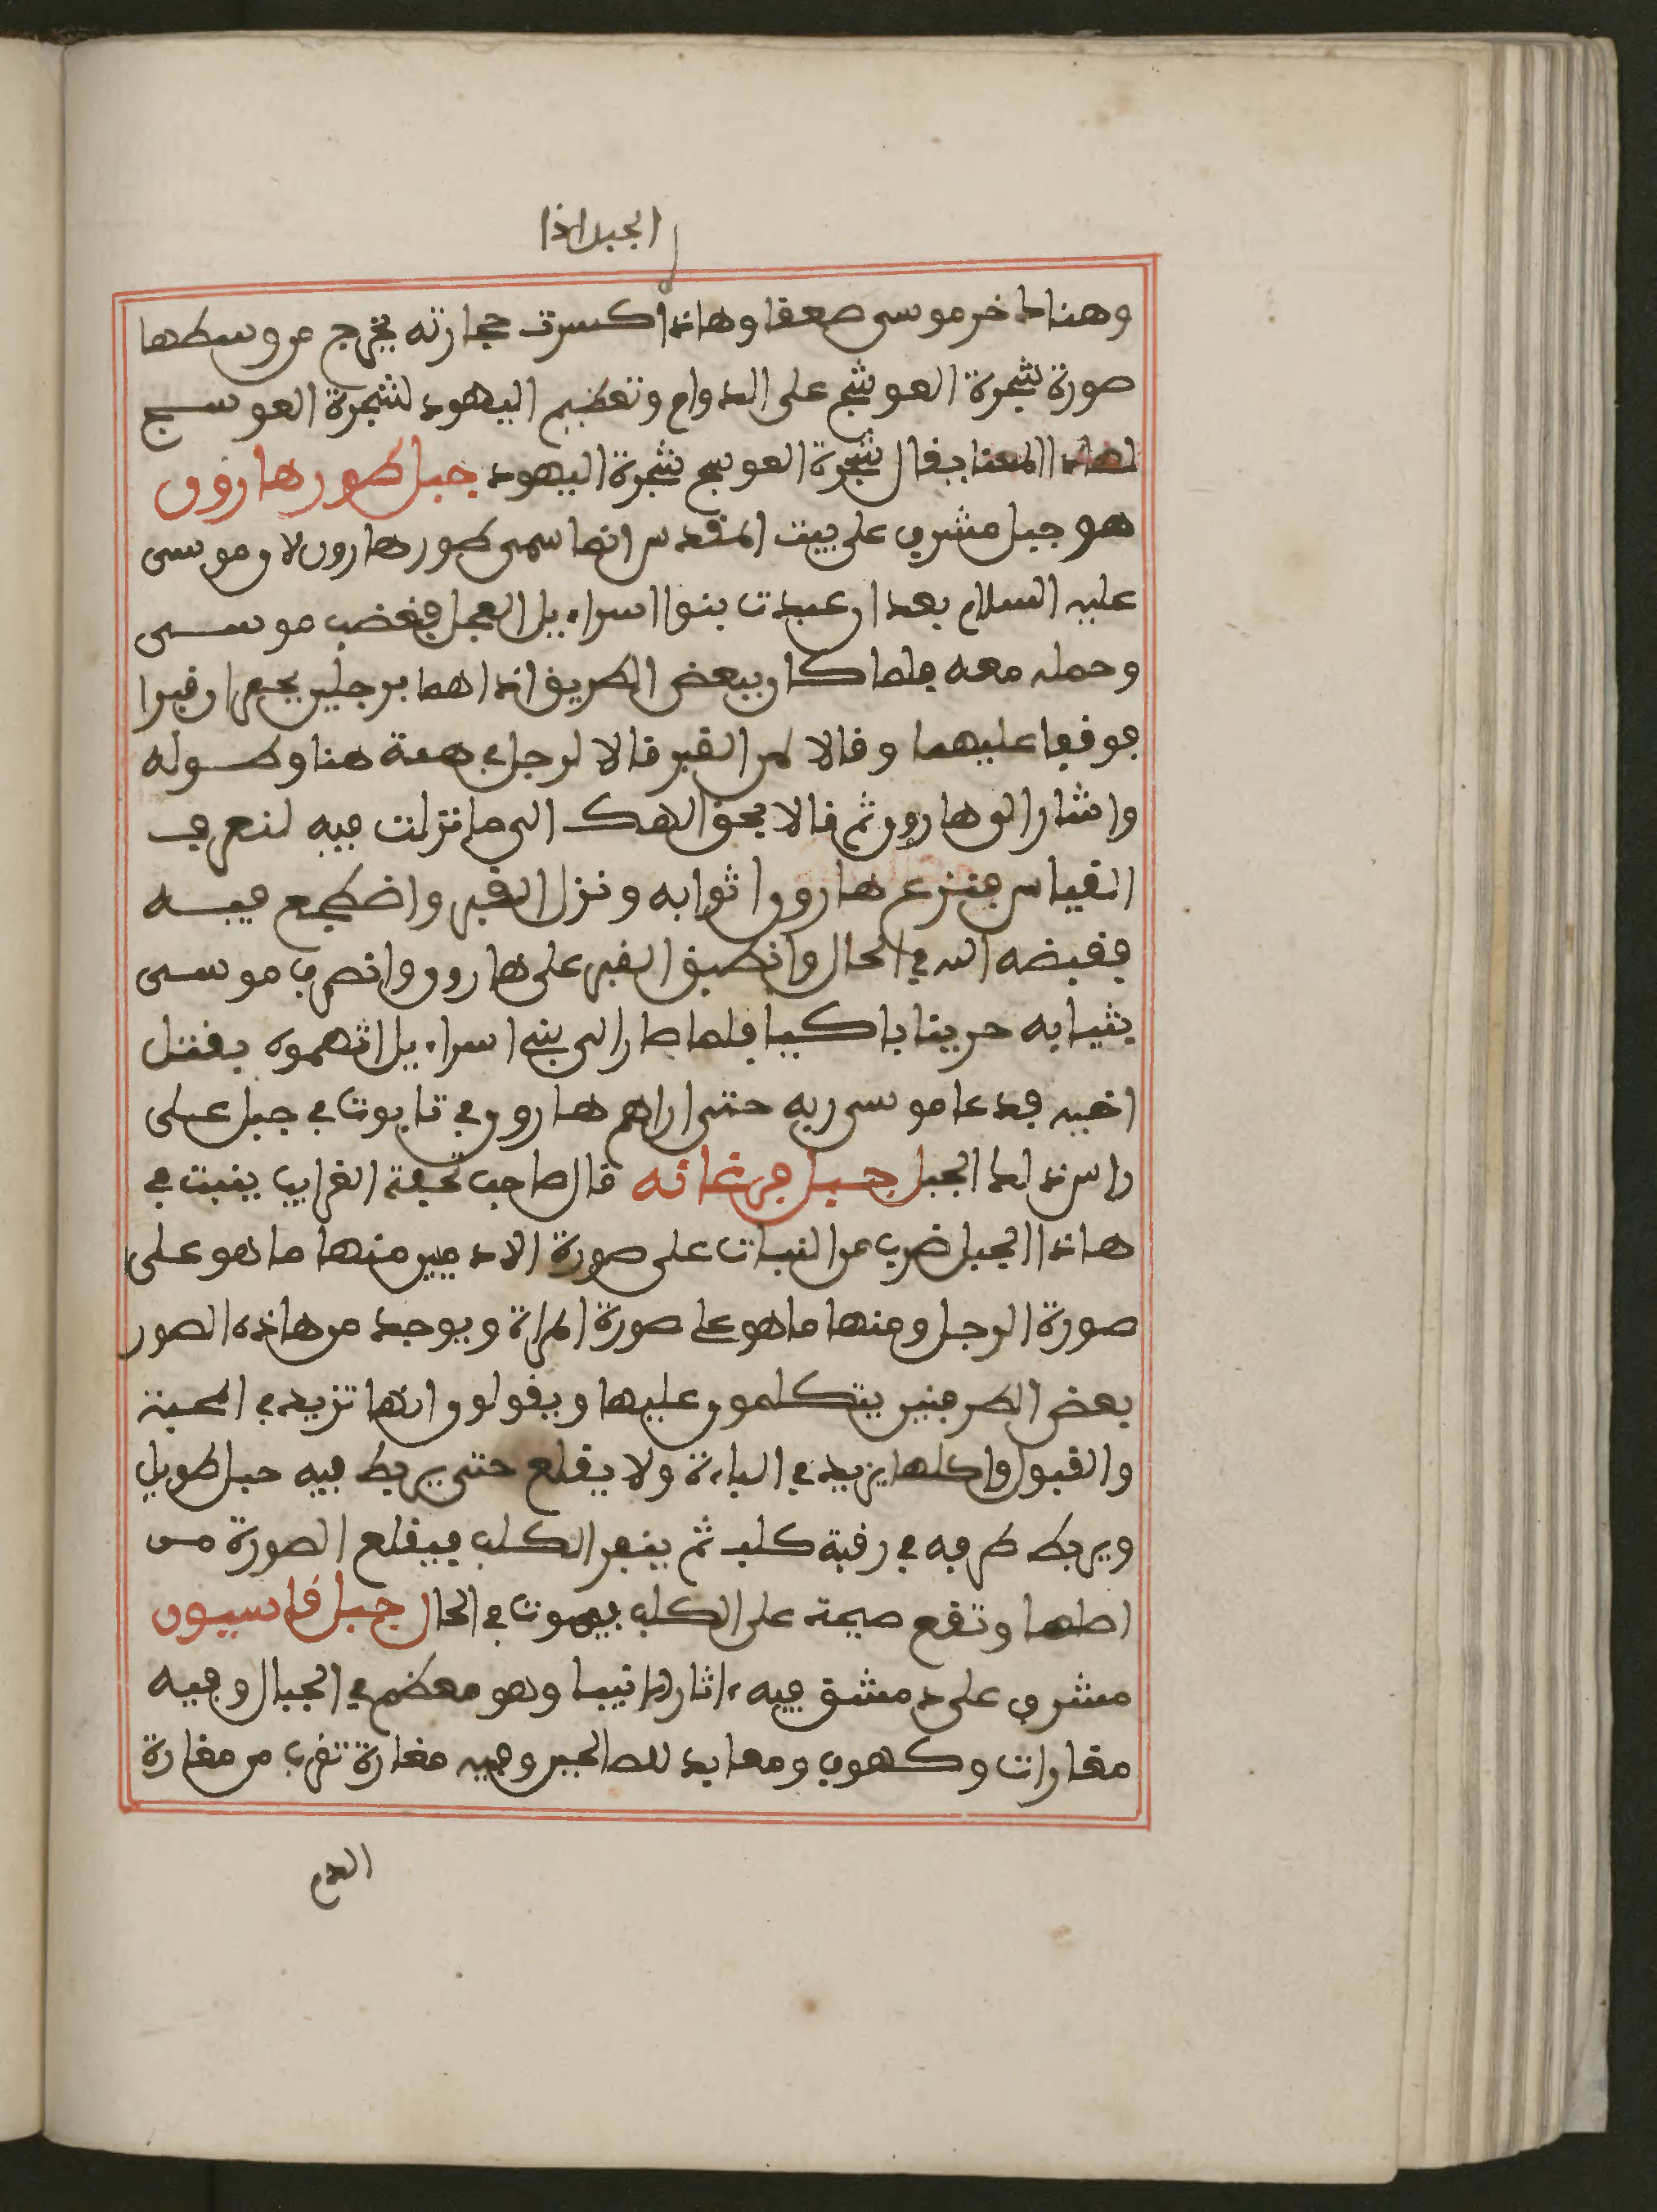 الجبل اذا
وهناك خر موسى صعقا وهاذا كسرت حجارته يخرج من وسطها
صورة شجرة العوشج على الدوام وتعظيم اليهود لشجرة العوسج
لهاذا المعنا يقال شجرة العوسج شجرة اليهود جبل طور هارون
هو جبل مشرف على بيت المقدس انما سمى طور هارون لان موسى
عليه السلام بعد ان عبدت بنوا اسراءيل العجل فغضب موسى
وحمله معه فلما كان ببعض الطريق اذاهما برجلين يحفران قبرا
فوقفا عليهما وقالا لمن القبر قالا لرجل في هيئة هذا وطوله
واشار الى هارون ثم قالا بحق الاهك الى ما نزلت فيه لنعرف
القياس فنزع هارون اثوابه ونزل القبر واضطجع فيه
فقبضه الله في الحال وانطبق القبر على هارون وانصرف موسى
بثيابه حزينا باكيا فلما صار الى بني اسراءيل اتهموه بقتل
اخيه فدعا موسى ربه حتى اراهم هارون في تابوت في جبل على
راس ذلك الجبل جبل فرغانه قال صاحب تحفة الغرايب ينبت في
هاذا الجبل ضرب من النبات على صورة الادميين منها ما هو على
صورة الرجل ومنها ما هو على صورة المراة ويوجد من هاذه الصور
بعض الطرقيين يتكلمون عليها ويقولون انها تزيد في المحبة
والقبول واكلها يزيد في الباءة ولا يقلع حتى يربط فيه حبل طويل
ويربط طرفه في رقبة كلب ثم ينفر الكلب فيقلع الصورة من
اصلها وتقع صيحة على الكلب فيموت في الحال جبل قاسيون
مشرف على دمشق فيه ءاثار الانبيا وهو معظم في الجبال وفيه
مغارات وكهوف ومعابد للصالحين وفيه مغارة تعرف من مغارة
الدم